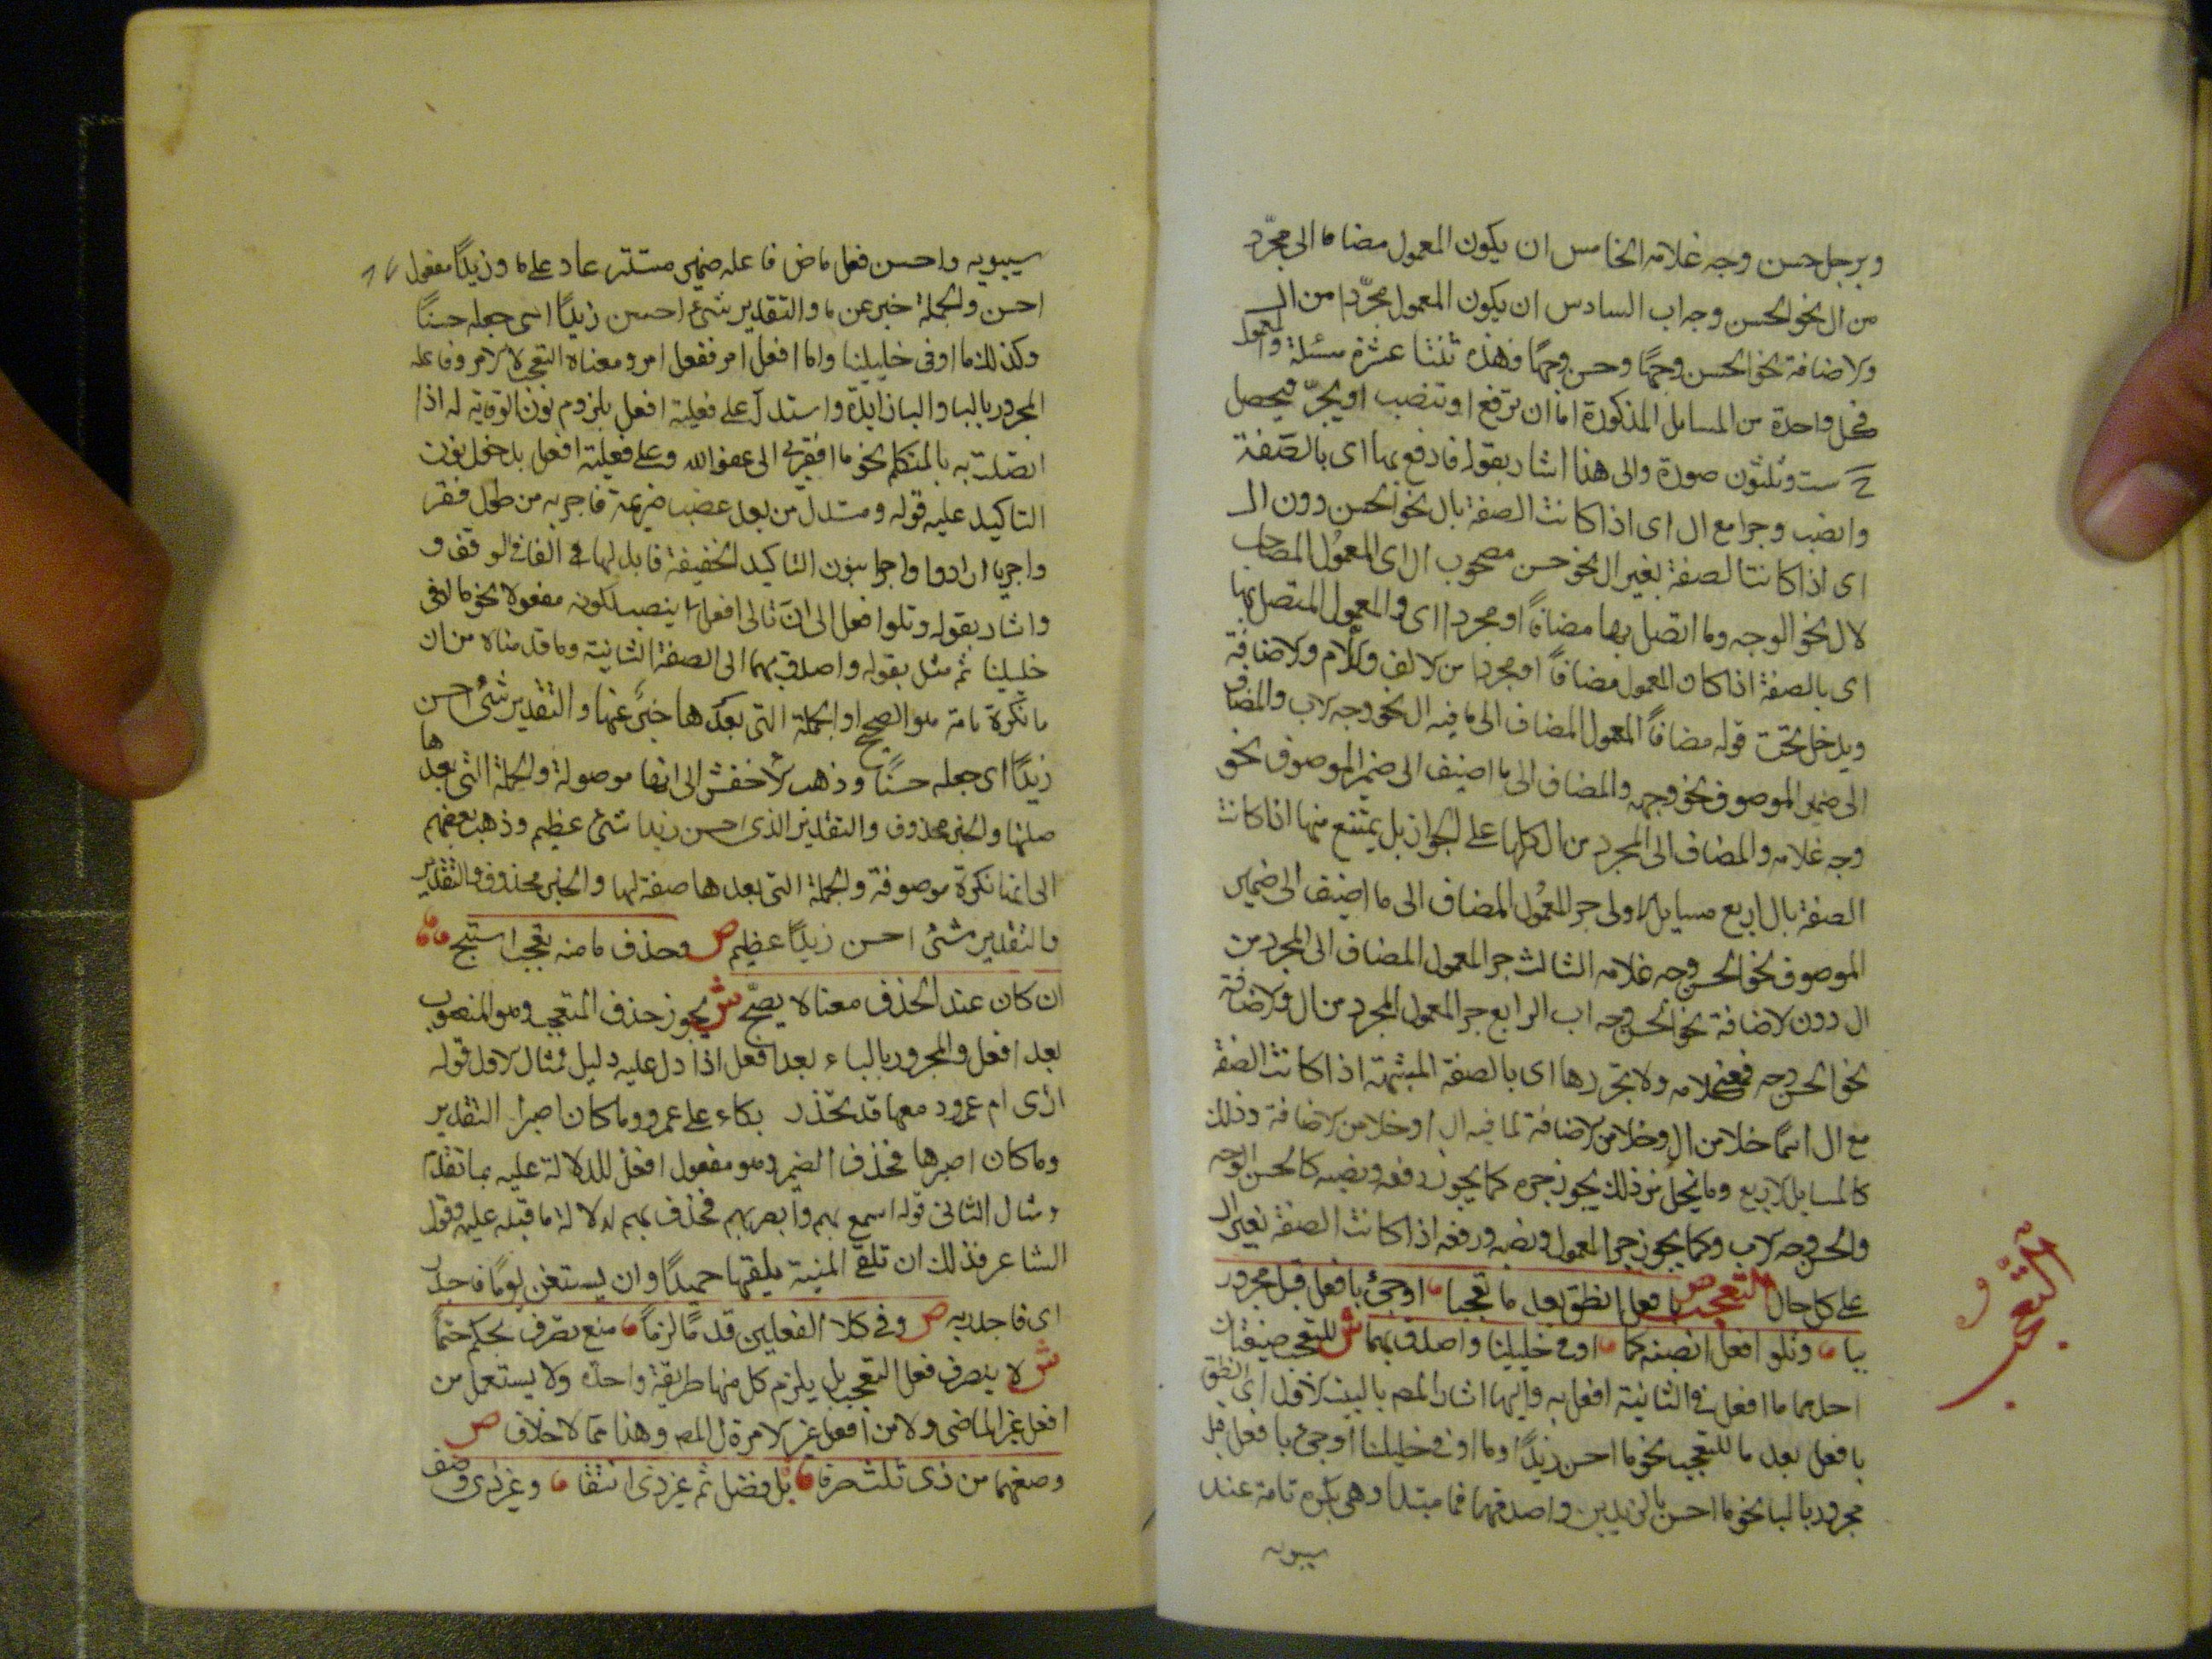 وبرجل حسن وجه غلامه الخامس ان يكون المعمول مضافا الى مجرّد
من ال نحو الحسن وجه اب السادس ان يكون المعمول مجرّدا من ال
ولاضافة نحو الحسن وجهًا وحسن وجهًا فهذه ثنتا عشرة مسئلة والمعمول
في كل واحدة من المسايل المذكورة اما ان ترفع او تنصب او يجرّ فيحصل
ح ست وثلثون صورة والى هذا اشار بقوله فارفع بها اى بالصّفة
وانصب وجر مع ال اى اذا كانت الصفة بال نحو الحسن دون ال
اى اذا كانت الصفة بغير ال نحو حسن مصحوب ال اى المعمول المصاحب
لال نحو الوجه وما اتصل بها مضافاً او مجردا اى والمعمول المتصل بها
اى بالصفة اذا كان المعمول مضافاً او مجردا من لالف واللام ولاضافة
ويدخل تحت قوله مضافاً المعمول المضاف الى ما فيه ال نحو وجه لاب والمضاف
الى ضمير الموصوف نحو وجهه والمضاف الى ما اضيف الى ضمير الموصوف نحو
وجه غلامه والمضاف الى المجرد من ال كلها على الجواز بل يمتنع منها اذا كانت
الصفة بال اربع مسايل لاولى جر المعمول المضاف الى ما اضيف الى ضمير
الموصوف نحو الحسن وجه غلامه الثالث جر المعمول المضاف الى المجرد من
ال دون لاضافة نحو الحسن وجه اب الرابع جر المعمول المجرد من ال ولاضافة
نحو الحسن وجه فمعنى كلامه ولا تجرر بها اى بالصفة المشبهة اذا كانت الصفة
مع ال اسمًا خلا من ال وخلا من لاضافة لما فيه ال او خلا من لاضافة وذلك
كالمسايل لاربع وما لم يخل من ذلك يجوز جره كما يجوز رفعه ونصبه كالحسن الوجه
والحسن وجه لاب وكما يجوز جر المعمول ونصبه ورفعه اذا كانت الصفة بغير ال
على كل حال التعجب ص بافعل انطق بعد ما تعجبا او جئ بافعل قبل مجرور
ببا وتلو افعل انصبنه كما اوفى خليلينا واصدق بهما ش للتعجب صيغتان
احدهما ما افعل في الثانية افعل به واليهما اشار المص بالبيت لاول اى انطق
بافعل بعد ما للتعجب نحو ما احسن زيدًا وما اوفى خليلينا او جئ بافعل قبل
مجرور بالبا نحو ما احسن بالزيدين واصدق بهما فما مبتدا وهى نكرة تامة عند
سيبويه
التعجب
سيبويه واحسن فعل ماض فاعله ضمير مستتر عاد على ما وزيدًا مفعول
احسن والجملة خبر عن ما والتقدير شئ احسن زيدًا اى جعله حسنًا
وكذلك ما اوفى خليلينا واما افعل امر ففعل امر ومعناه التعجب لا لامر وفاعله
المجرور بالبا والبا زايدة واستدل على فعلية افعل بلزوم نون الوقاية له اذا
اتصلت به يا المتكلم نحو ما افقرني الى عفو الله وعلى فعلية افعل بدخول نون
التاكيد عليه قوله ومستدل من بعد غضب ضريمة فاحر به من طول فقر
واحريا اراد واحرين بنون التاكيد الخفيفة فابدلها الفا في الوقف و
واشار بقوله وتلو افعل الى ان تالى افعل ينصب لكونه مفعولا نحو ما اوفى
خليلينا ثم مثل بقوله واصدق بهما الى الصفة الثانية وما قدمناه من ان
ما نكرة تامة هو الصحيح او الجملة التي بعدها خبر عنها والتقدير شئ احسن
زيدًا اى جعله حسنًا وذهب لاخفش الى انها موصولة والجملة التي بعدها
صلتها والخبر محذوف والتقدير الذى احسن زيدا شئ عظيم وذهب بعضهم
الى انها نكرة موصوفة والجملة التي بعدها صفة لها والخبر محذوف والتقدير
والتقدير شئ احسن زيدًا عظيم ص وحذف ما منه تعجبت استبح
ان كان عند الحذف معناه يصّح ش يجوز حذف المتعجب وهو المنصوب
بعد افعل والمجرور بالباء بعد افعل اذا دل عليه دليل فمثال لاول قوله
ارى ام عمرو دمعها قد تحدر بكاء على عمرو وما كان اصبرا التقدير
وما كان اصبرها فحذف الضمير وهو مفعول افعل للدلالة عليه بما تقدم
ومثال الثاني قوله اسمع بهم وابصر بهم فحذف بهم لدلالة ما قبله عليه وقول
الشاعر فذلك ان تلقى المنية يلقها حميدًا وان يستغن يومًا فاجدر
اى فاجدر به ص وفي كلا الفعلين قدمًا لزمًا منع تصرف بحكم حتمًا
ش لا يتصرف فعل التعجب بل يلزم كل منها طريقة واحده ولا يستعمل من
افعل غير الماضي ولا من افعل غير لامر قال المص وهذا مما لا خلاف ص
وصغهما من ذى ثلث صرفا قابل فضل تم غير ذى انتفا وغير ذى وصف